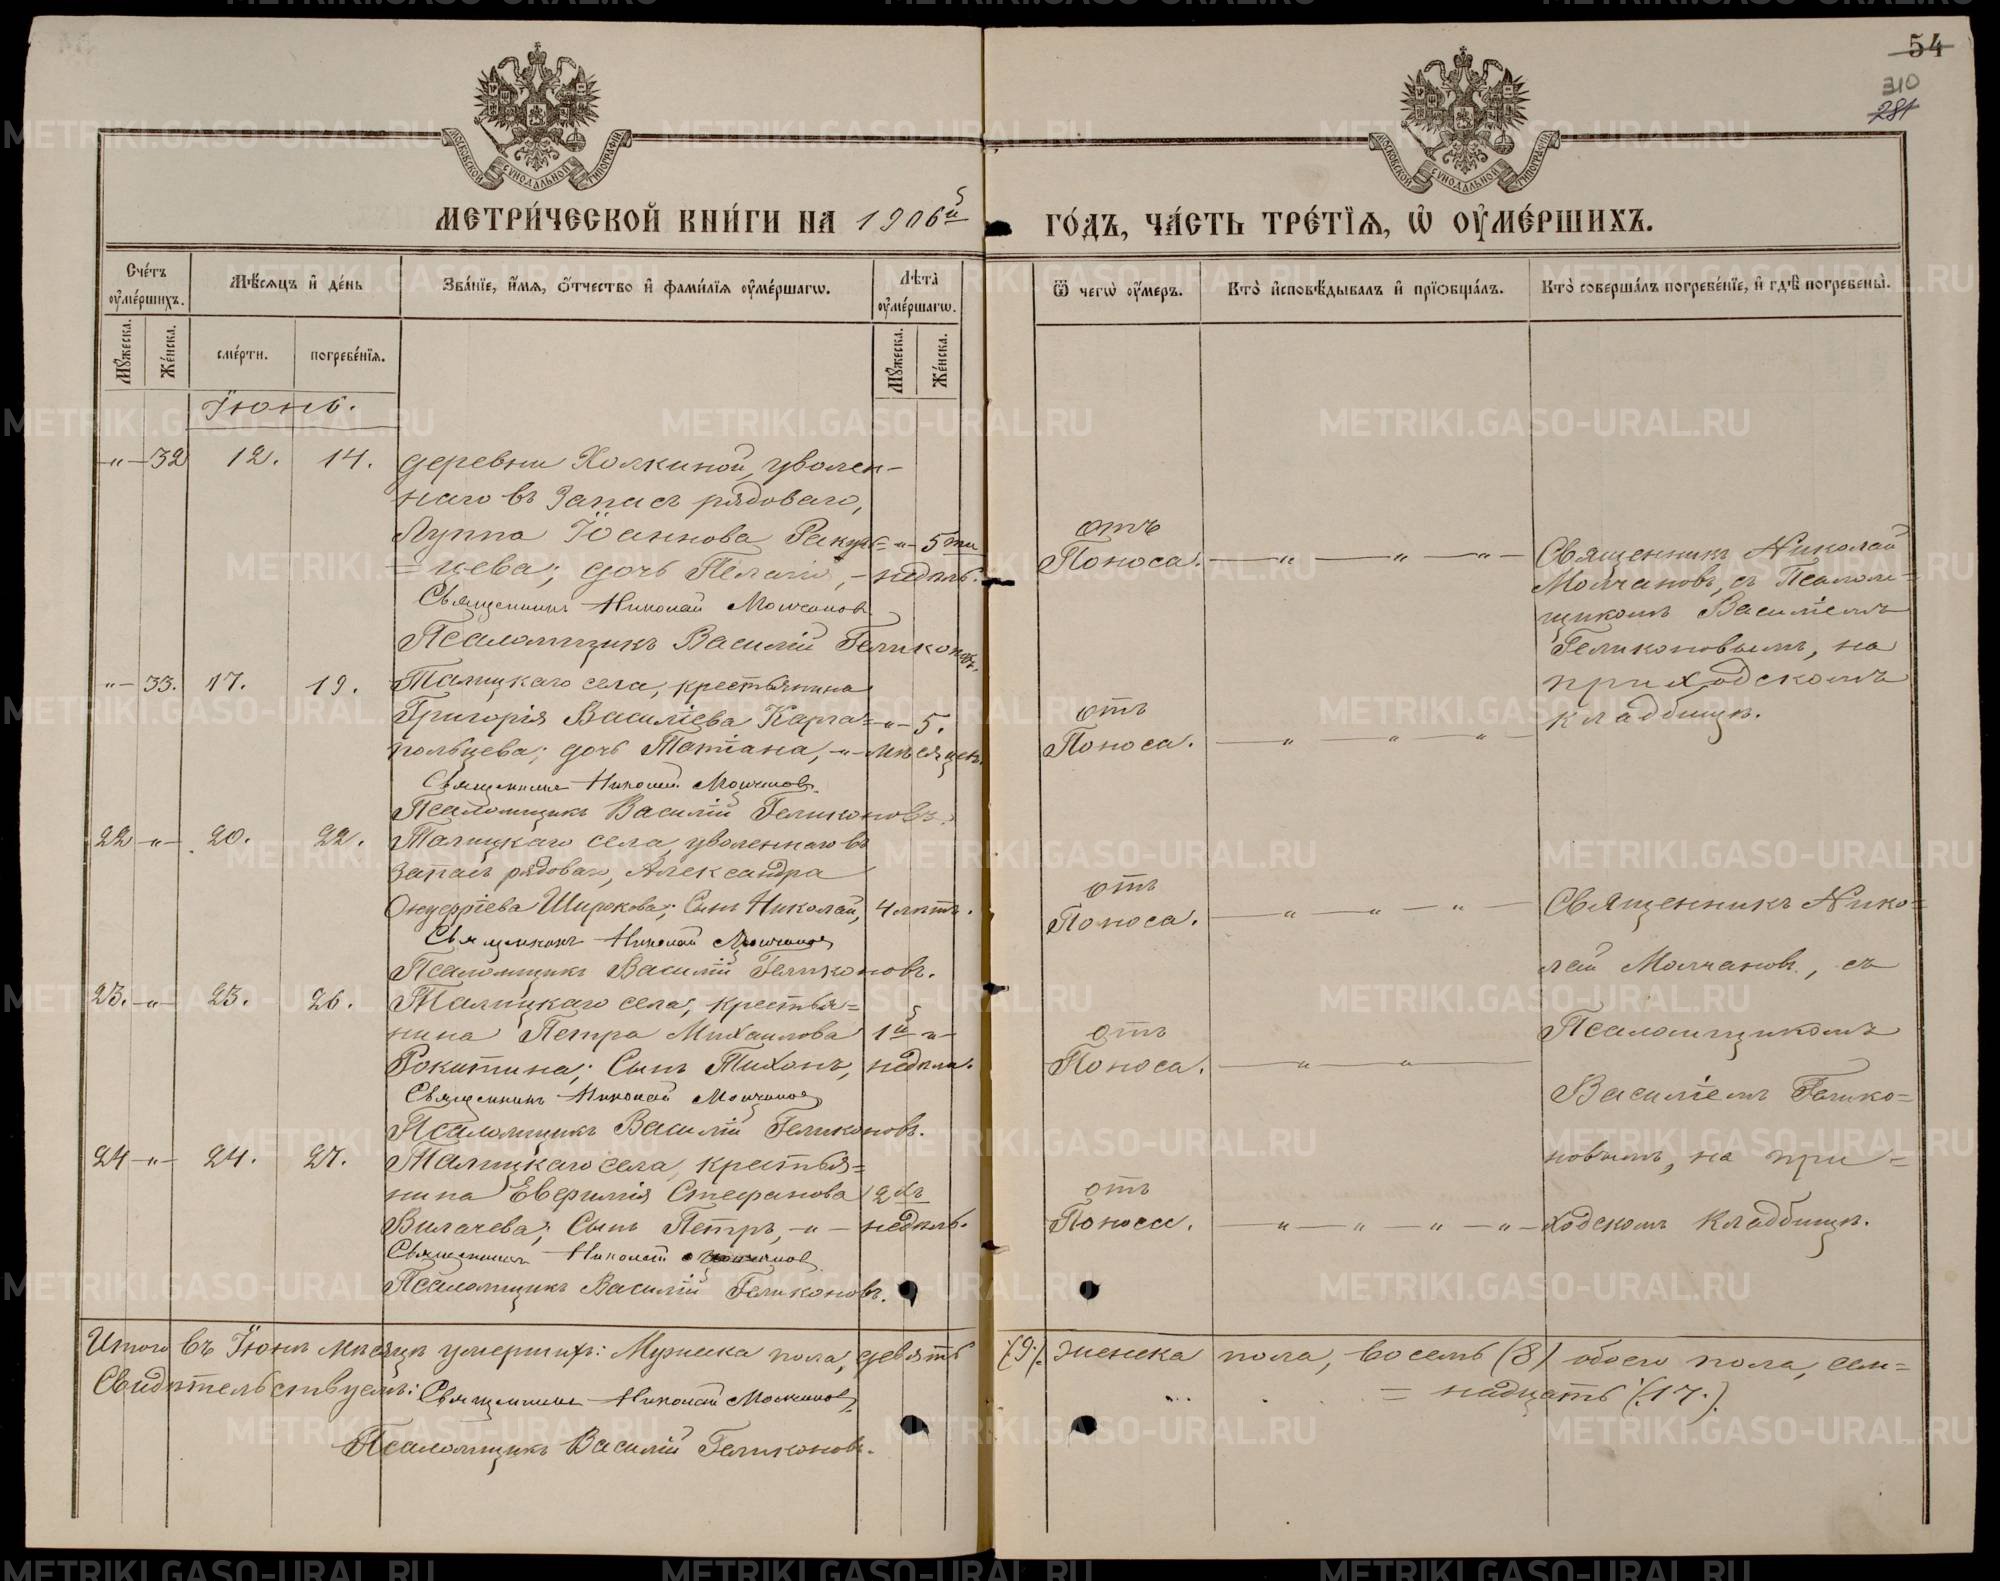 54
310
281
МОСКОВСКОЙ СѴНОДАЛЬНОЙ ТИПОГРАФІИ
МОСКОВСКОЙ СѴНОДАЛЬНОЙ ТИПОГРАФІИ
МЕТРИ́ЧЕСКОЙ КНИ́ГИ НА 1906й
ГО́ДЪ, ЧА́СТЬ ТРЕ́ТЇѦ, Ѡ҆ ОУ҆МЕ́РШИХЪ.
Сче́тъ оу҆ме́ршихъ.
Мѣ́сѧцъ и҆ де́нь
Зва́нїе, и҆́мѧ, ѻ҆́тчество и҆ фами́лїѧ оу҆ме́ршагѡ.
Лѣ́та̀ оу҆ме́ршагѡ.
Ѿ чегѡ̀ оу҆́меръ.
Кто̀ и҆сповѣ́дывалъ и҆ прїѡбща́лъ.
Кто̀ соверша́лъ погребе́нїе, и҆ гдѣ̀ погребены̀.
Мꙋ́жеска.
Же́нска.
сме́рти.
погребе́нїѧ.
Мꙋ́жеска.
Же́нска.
Іюнь.
— „ — 32 12. 14. деревни Холкиной, уволен-
наго въ запасъ рядоваго,
Луппа Іоаннова Ракуль= „ — 5ти
= цева; дочь Пелагія, — недѣль.
Священникъ Николай Молчановъ
Псаломщикъ Василій Геликоновъ.
отъ
Поноса. — „ — „ — „ —
Священникъ Николай
Молчановъ, съ Псалом=
щикомъ Василіемъ
Геликоновымъ, на
приходскомъ
кладбищѣ.
„ — 33. 17. 19. Талицкаго села, крестьянина
Григорія Василіева Карга= „ — 5.
польцева; дочь Татіана, — „ — мѣсяцевъ.
Священникъ Николай Молчановъ.
Псаломщикъ Василій Геликоновъ.
отъ
Поноса. — „ — „ — „ —
22 — „ — 20. 22. Талицкаго села, уволеннаго въ
запасъ рядоваго, Александра
Онуфріева Широкова; Сынъ Николай, 4 лѣтъ.
Священникъ Николай Молчановъ
Псаломщикъ Василій Геликоновъ.
отъ
Поноса. — „ — „ — „ —
Священникъ Нико=
лай Молчановъ, съ
Псаломщикомъ
Василіемъ Гелико=
новымъ, на при=
ходскомъ кладбищѣ.
23. — „ — 23. 26. Талицкаго села, крестья=
нина Петра Михаилова 1й „ —
Рокитина; Сынъ Тихонъ, недѣли.
Священникъ Николай Молчановъ
Псаломщикъ Василій Геликоновъ.
отъ
Поноса. — „ — „ —
24 — „ — 24. 27. Талицкаго села, крестья=
нина Евфимія Стефанова 2хъ
Вилачева; Сынъ Петръ, — „ — недѣль.
Священникъ Николай Молчановъ
Псаломщикъ Василій Геликоновъ.
отъ
Поноса. — „ — „ — „ — „ —
Итого въ Іюнѣ мѣсяцѣ умершихъ: Мужеска пола, девять (9). женска пола, восемь (8) обоего пола, сем=
= надцать (17.).
Свидѣтельствуемъ: Священникъ Николай Молчановъ
Псаломщикъ Василій Геликоновъ.
METRIKI.GASO-URAL.RU